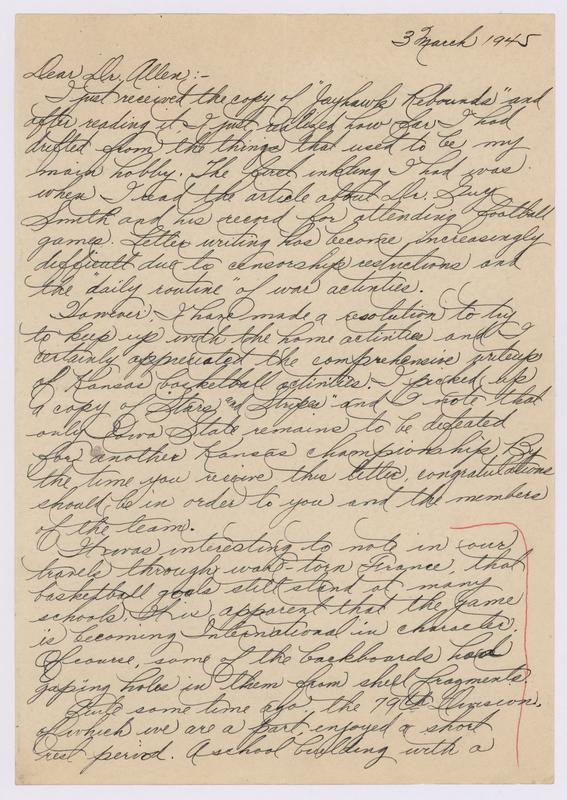 3 March 1945
Dear Dr. Allen:-
I just received the copy of "Jayhawk Rebounds" and
after reading it I just realized how far I had
drifted from the things that used to be my
main hobby. The first inkling I had was
when I read the article about Dr. Guy
Smith and his record for attending football
games. Letter writing has become increasingly
difficult due to censorship restrictions and
the "daily routine" of war activities.
However, I have made a resolution to try
to keep up with the home activities and I
certainly appreciated the comprehensive writeup
of Kansas basketball activities. I picked up
a copy of "Stars and Stripes" and I note that
only Iowa State remains to be defeated
for another Kansas championship. By
the time you receive this letter, congratulations
should be in order to you and the members
of the team.
It was interesting to note in our
travels through war-torn France, that
basketball goals still stand at many
schools. It is apparent that the game
is becoming International in character.
Of course, some of the backboards had
gaping holes in them from shell fragments.
Quite some time ago, the 79th Division,
of which we are a part, enjoyed a short
rest period. A school building with a